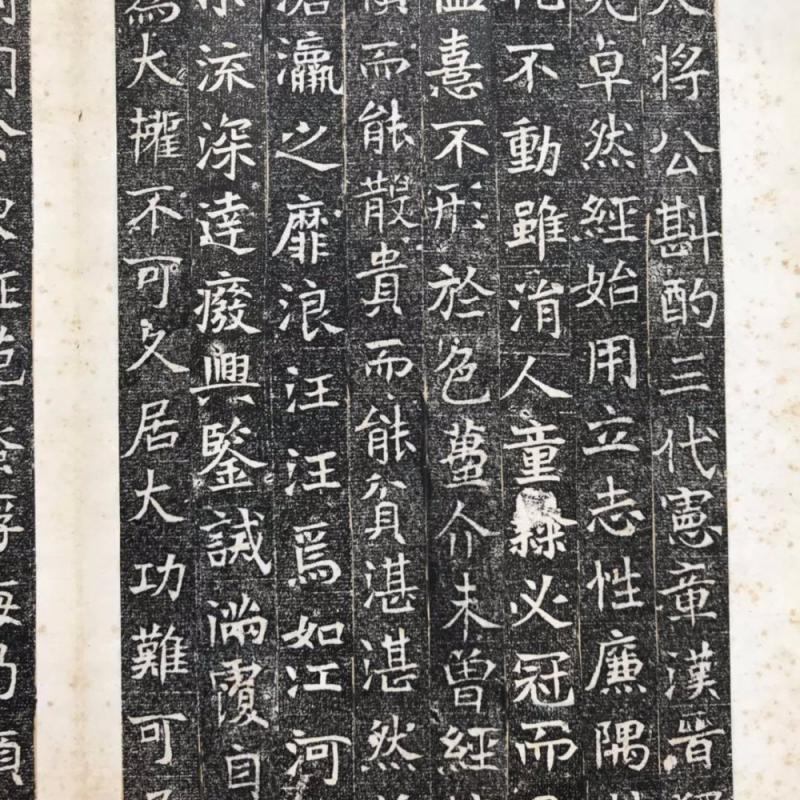 將公斟酌三代憲章漢晉
卓然經始用立志性廉隅
不動雖涓人童隸必冠而
憙不形於色蠆介未曾經
而能散貴而能貧湛湛然
滄瀛之靡浪汪汪焉如江河
流深達廢興鑒誡滿覆自
為大權不可久居大功難可